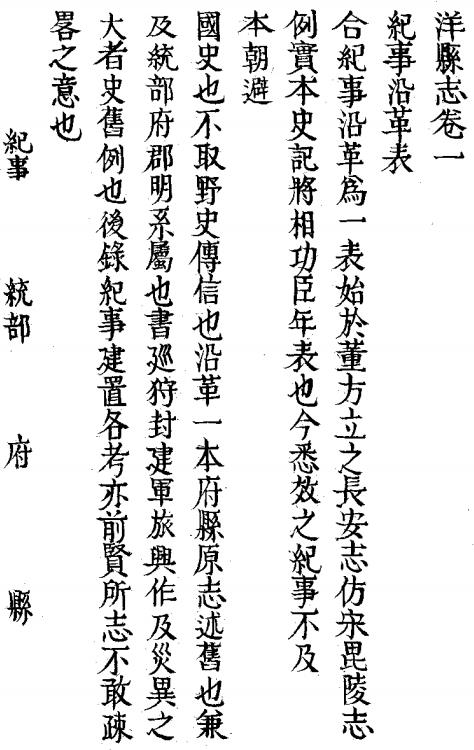 洋縣志卷一
紀事沿革表
合紀事沿革爲一表始於董方立之長安志仿宋毘陵志
例實本史記將相功臣年表也今悉效之紀事不及
本朝避
國史也不取野史傳信也沿革一本府縣原志述舊也兼
及統部府郡明系屬也書廵狩封建軍旅興作及災異之
大者史舊例也後錄紀事建置各考亦前賢所志不敢疎
畧之意也
紀事 統部 府 縣